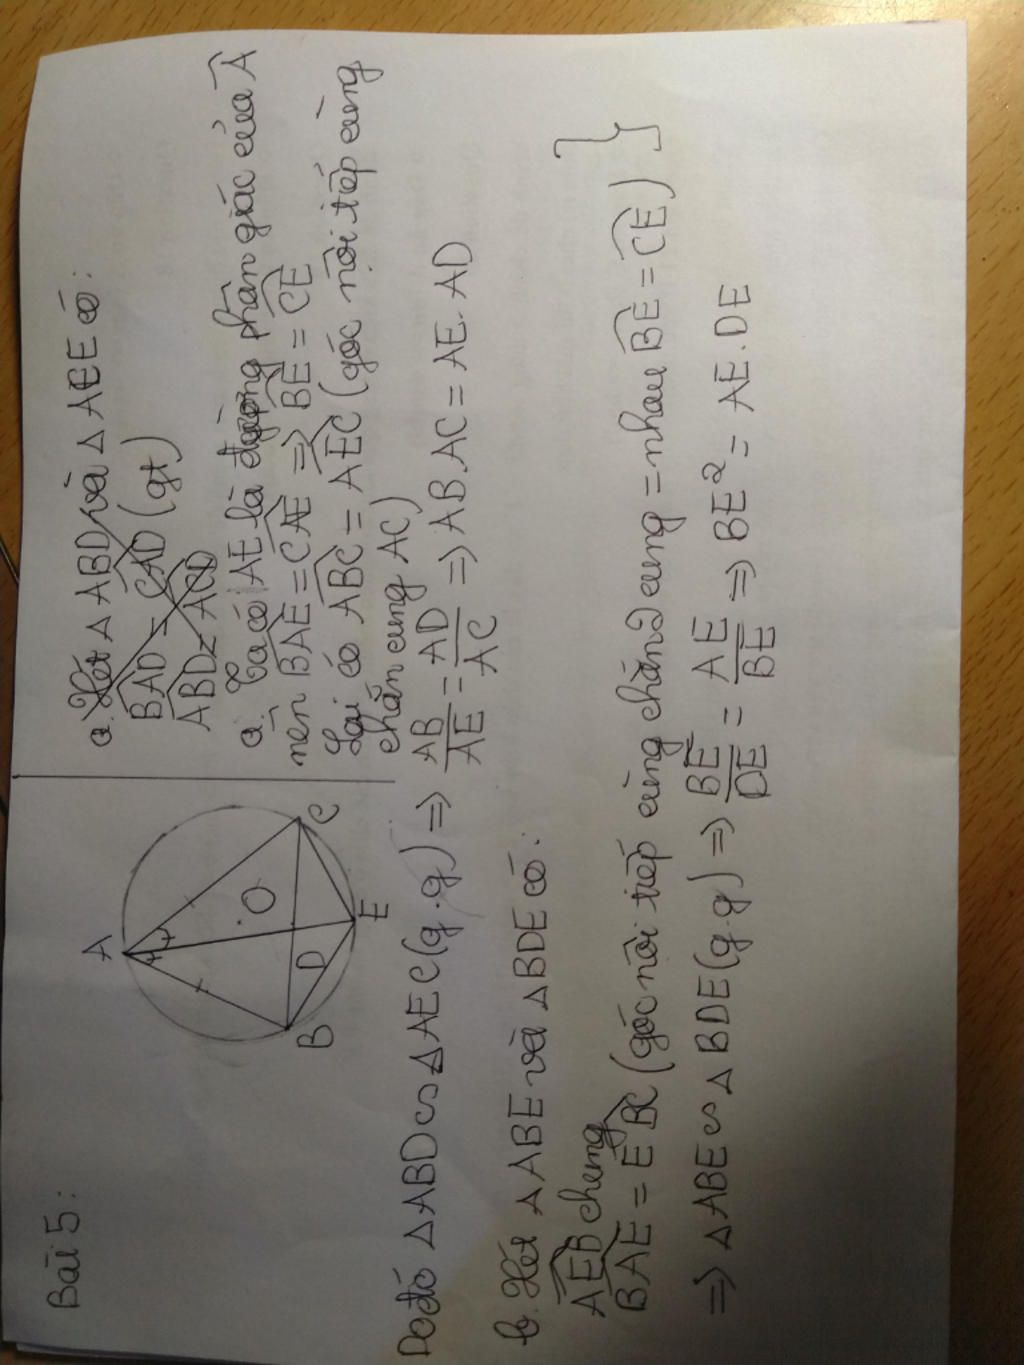 Bài 5:
A
B
C
D
E
O
a. Xét △ ABD và △ AEE có:
BAD = CAD (gt)
ABD = ACD
a. Ta có AE là đường phân giác của Â
nên BAE = CAE => BE = CE
Lại có ABC = AEC (góc nội tiếp cùng
chắn cung AC)
Do đó △ABD ∽ △AEC (g.g) => AB/AE = AD/AC => AB.AC = AE.AD
b. Xét △ABE và △BDE có:
AEB chung
BAE = EBC (góc nội tiếp cùng chắn 2 cung = nhau BE = CE) }
=> △ABE ∽ △BDE (g.g) => BE/DE = AE/BE => BE² = AE.DE